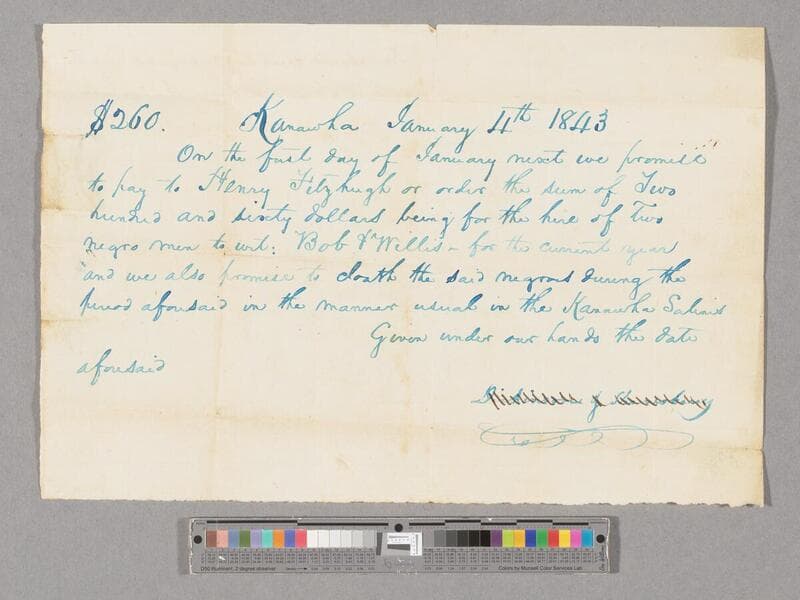 $260. Kanawha January 4th 1843
On the first day of January next we promise
to pay to Henry Fitzhugh or order the sum of Two
hundred and sixty dollars being for the hire of Two
negro men to wit: Bob & Willis - for the current year
and we also promise to cloath the said negroes during the
period aforesaid in the manner usual in the Kanawha Salines
Given under our hands the date
aforesaid
D50 Illuminant, 2 degree observer
Colors by Munsell Color Services Lab